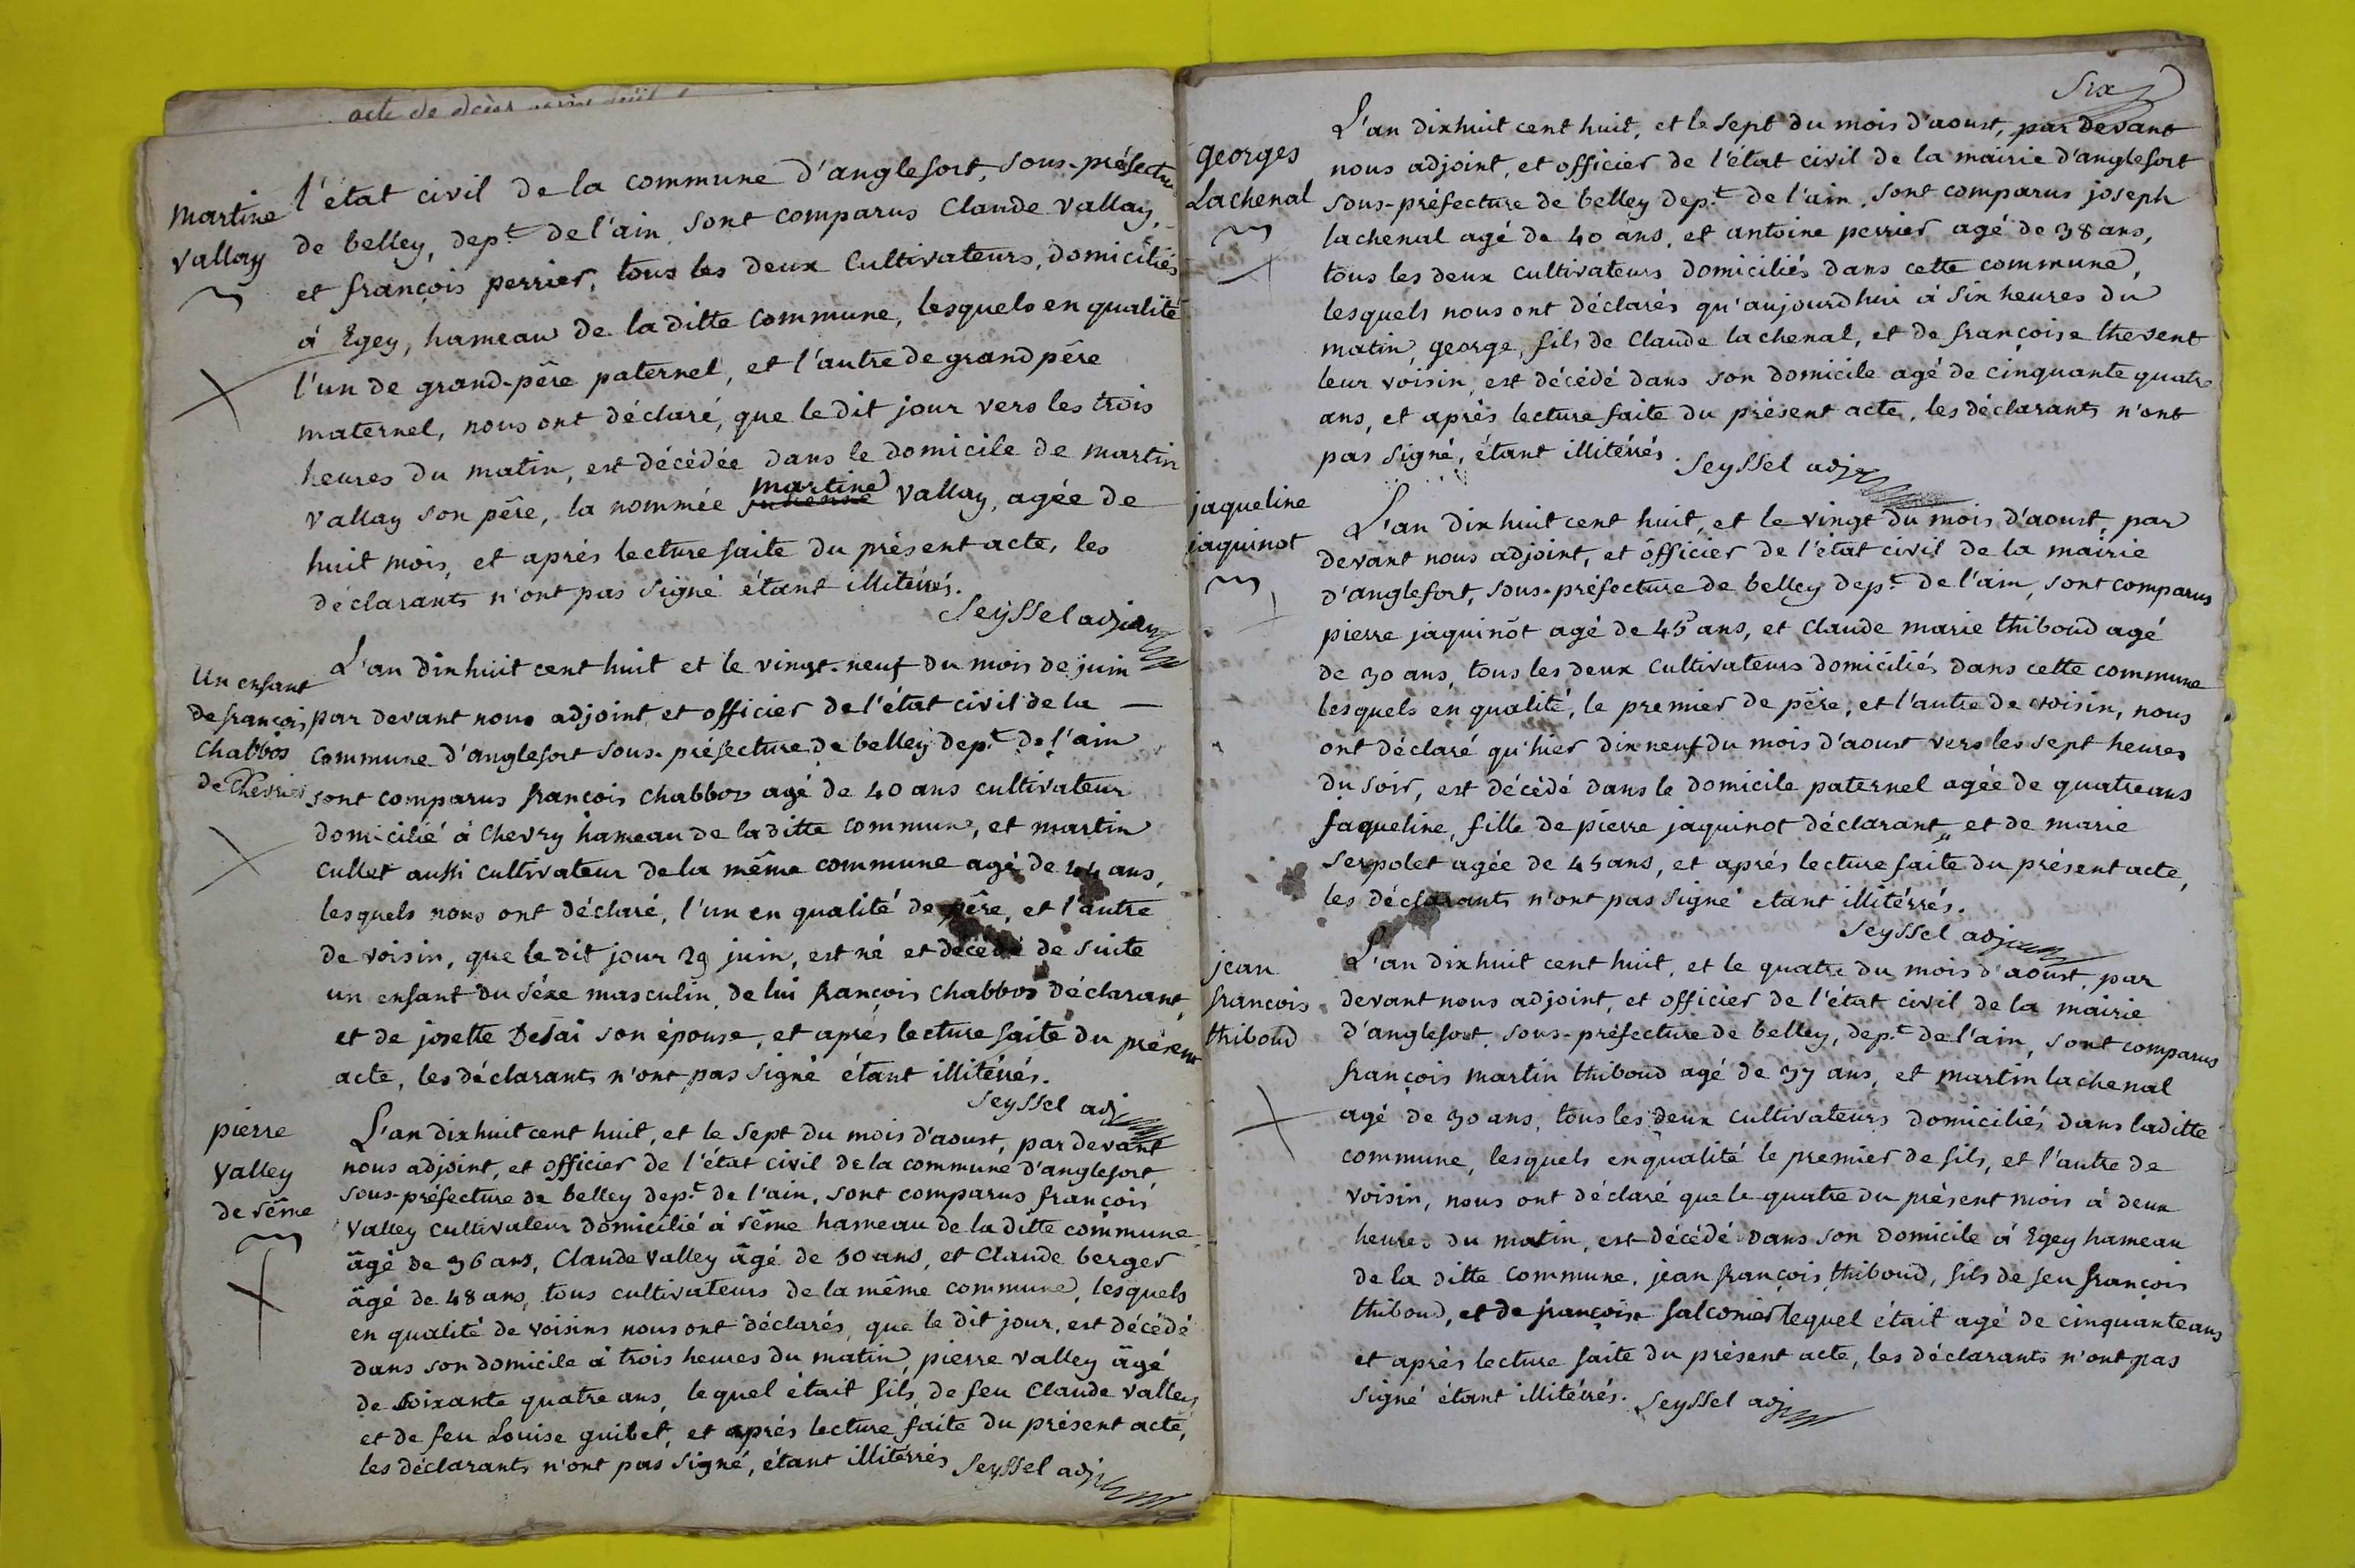 acte de décès
Martine
vallay
l'état civil de la commune d'anglefort, sous-préfectu
de belley, dep.t de l'ain sont comparus Claude vallay,
et françois perrier, tous les deux Cultivateurs, domiciliés
à Egey, hameau de la ditte commune, lesquels en qualité
l'un de grand-père paternel, et l'autre de grand père
maternel, nous ont déclaré, que le dit jour vers les trois
heures du matin, est décédée dans le domicile de martin
martine
vallay son père, la nommée vallay, agée de
huit mois, et après lecture faite du présent acte, les
déclarants n'ont pas signé étant illitérrés.
Seyssel adjoin
Un enfant
de françois
Chabbos
de Chevries
L'an dixhuit cent huit et le vingt-neuf du mois de juin
par devant nous adjoint et officier de l'état civil de la —
commune d'anglefort sous-préfecture de belley dep.t de l'ain
sont comparus françois chabbos agé de 40 ans cultivateur
domicilié à Chevry hameau de la ditte commune, et martin
cullet aussi cultivateur de la même commune agé de 44 ans,
lesquels nous ont déclaré, l'un en qualité de père, et l'autre
de voisin, que le dit jour 29 juin, est né et décédé de suite
un enfant du séxe masculin, de lui françois chabbos déclarant,
et de josette Desai son épouse, et après lecture faite du présent
acte, les déclarants n'ont pas signé étant illitérrés.
Seyssel adj
pierre
valley
de rême
L'an dixhuit cent huit, et le sept du mois d'aoust, par devant
nous adjoint, et officier de l'état civil de la commune d'anglefort
sous-préfecture de belley dep.t de l'ain, sont comparus françois
valley cultivateur domicilié à rême hameau de la ditte commune
âgé de 36 ans, Claude valley âgé de 50 ans, et Claude berger
âgé de 48 ans, tous cultivateurs de la même commune, lesquels
en qualité de voisins nous ont déclarés, que le dit jour, est décédé
dans son domicile à trois heures du matin, pierre valley âgé
de soixante quatre ans, lequel était fils de feu Claude valley
et de feu Louise guibet, et après lecture faite du présent acte,
les déclarants n'ont pas signé, étant illitérrés Seyssel adj
Six
georges
Lachenal
L'an dixhuit cent huit, et le sept du mois d'aoust, par devant
nous adjoint, et officier de l'état civil de la mairie d'anglefort
sous-préfecture de belley dep.t de l'ain, sont comparus joseph
lachenal agé de 40 ans, et antoine perrier agé de 38 ans,
tous les deux cultivateurs domiciliés dans cette commune,
lesquels nous ont déclarés qu'aujourdhui à six heures du
matin, george, fils de Claude lachenal, et de françoise thevent
leur voisin, est décédé dans son domicile agé de cinquante quatre
ans, et après lecture faite du présent acte, les déclarants n'ont
pas signé, étant illitérrés. Seyssel adj
jaqueline
jaquinot
L'an dixhuit cent huit, et le vingt du mois d'aoust, par
devant nous adjoint, et officier de l'état civil de la mairie
d'anglefort, sous-préfecture de belley dep.t de l'ain, sont comparus
pierre jaquinot agé de 45 ans, et Claude marie thiboud agé
de 30 ans, tous les deux cultivateurs domiciliés dans cette commune
lesquels en qualité, le premier de père, et l'autre de voisin, nous
ont déclaré qu'hier dix neuf du mois d'aoust vers les sept heures
du soir, est décédé dans le domicile paternel agée de quatre ans
jaqueline, fille de pierre jaquinot déclarant, et de marie
serpolet agée de 45 ans, et après lecture faite du présent acte,
les déclarants n'ont pas signé etant illitérrés.
Seyssel adj
jean
françois
thiboud
L'an dixhuit cent huit, et le quatre du mois d'aoust, par
devant nous adjoint, et officier de l'état civil de la mairie
d'anglefort, sous-préfecture de belley, dep.t de l'ain, sont comparus
françois martin thiboud agé de 37 ans, et martin lachenal
agé de 30 ans, tous les deux cultivateurs domiciliés dans laditte
commune, lesquels en qualité le premier de fils, et l'autre de
voisin, nous ont déclaré que le quatre du présent mois à deux
heures du matin, est décédé dans son domicile à Egey hameau
de la ditte commune, jean françois thiboud, fils de feu françois
thiboud, et de françoise falconier lequel était agé de cinquante ans
et après lecture faite du présent acte, les déclarants n'ont pas
signé étant illitérrés. Seyssel adj